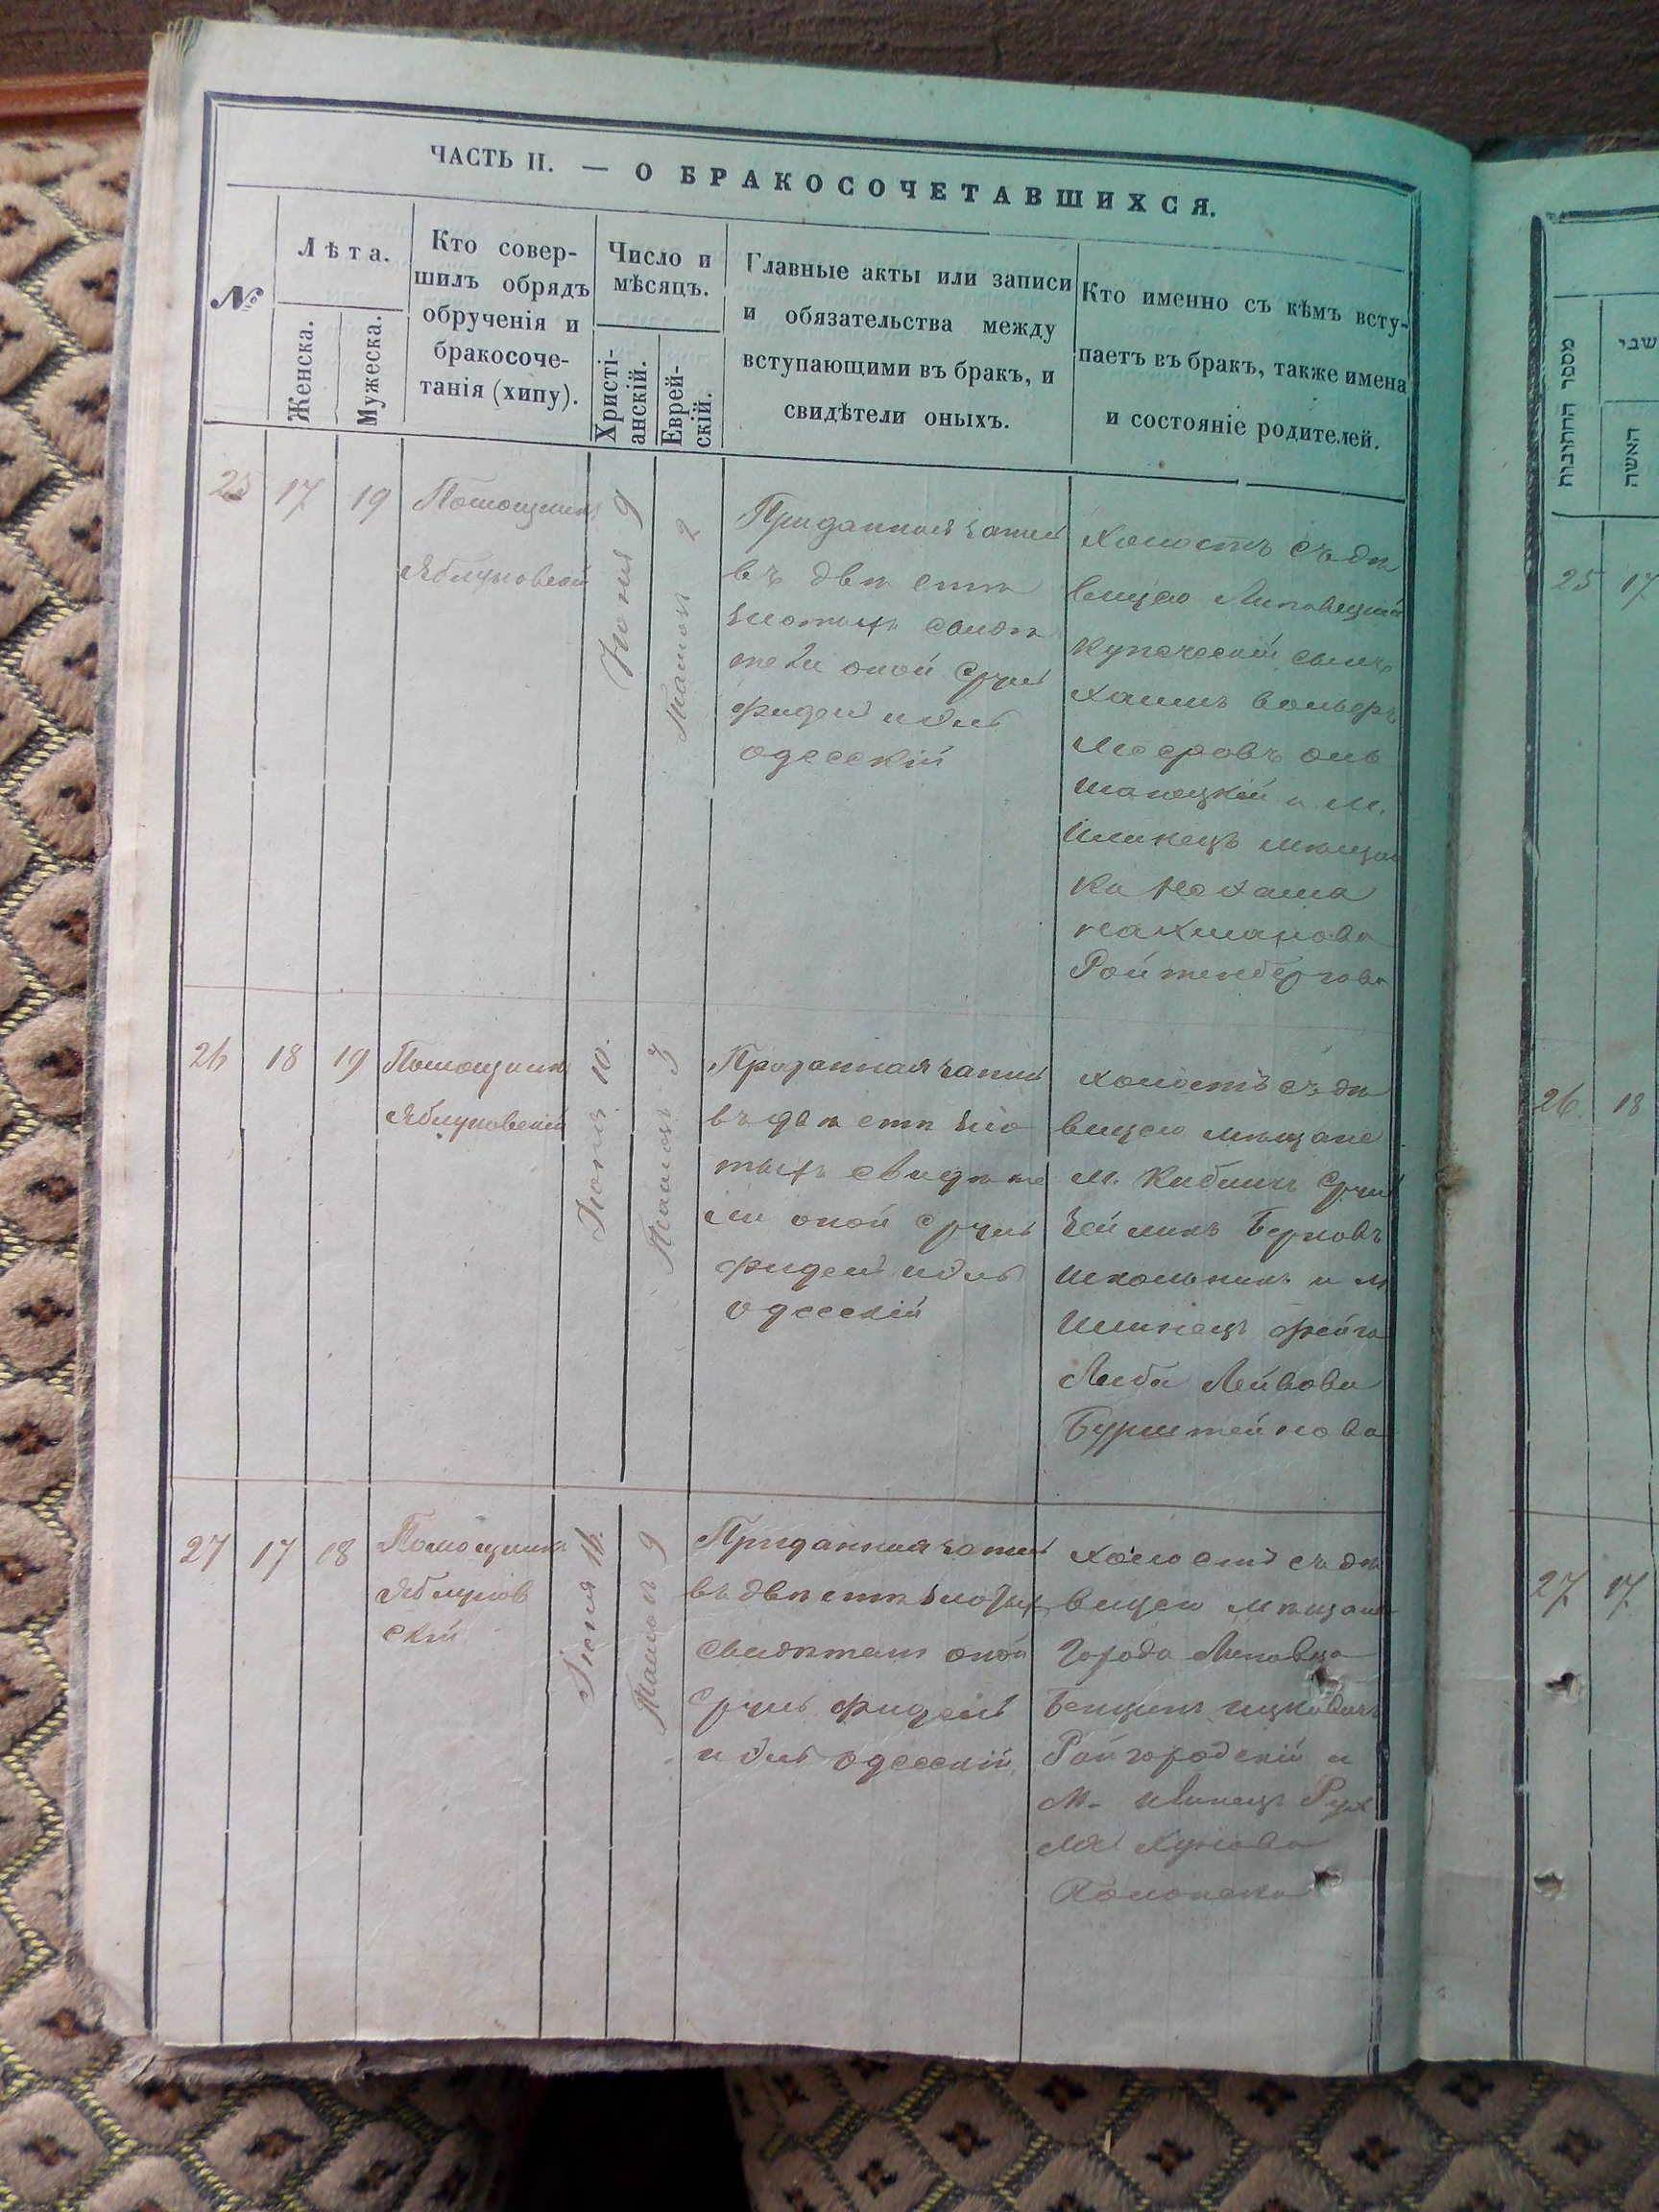 ЧАСТЬ II. — О БРАКОСОЧЕТАВШИХСЯ.
№
Лѣта.
Женска.
Мужеска.
Кто совер-
шилъ обрядъ
обрученія и
бракосоче-
танія (хипу).
Число и
мѣсяцъ.
Христі-
анскій.
Еврей-
скій.
Главные акты или записи
и обязательства между
вступающими въ бракъ, и
свидѣтели оныхъ.
Кто именно съ кѣмъ всту-
паетъ въ бракъ, также имена
и состояніе родителей.
25
17
19
Помощникъ
Яблуновскій
Іюня 9
2
Приданная запись
въ двѣ стѣ
злотыхъ свидѣ
тели оной Сруль
фидель идль
одесскій
холостъ съ дѣ
вицею Липовецкій
купеческій сынъ
хаимъ вольфъ
и М.
Илинецъ мѣщан
ка
нахманова
Ройтенбергова
26
18
19
Помощникъ
Яблуновскій
Іюня 10.
3
Приданная запись
въ двѣ стѣ зло
тыхъ свидѣте
ли оной Сруль
фидель идль
одесскій
холостъ съ дѣ
вицею мѣщане
м. Сруль
Берковъ
школьникъ и м
Илинецъ фейга
Лейбова
Бурштейнова
27
17
18
Помощникъ
Яблунов
скій
Іюня
9
Приданная запись
въ двѣ стѣ злотых
свидѣтели оной
Сруль фидель
идль одесскій
холостъ съ дѣ
вицею мѣщане
города Липовца
Бенционъ ицковичъ
Райгородскій и
м. Илинецъ Рух
ля
מספר החתונות
האשה
שבי
25 17
26 18
27 17